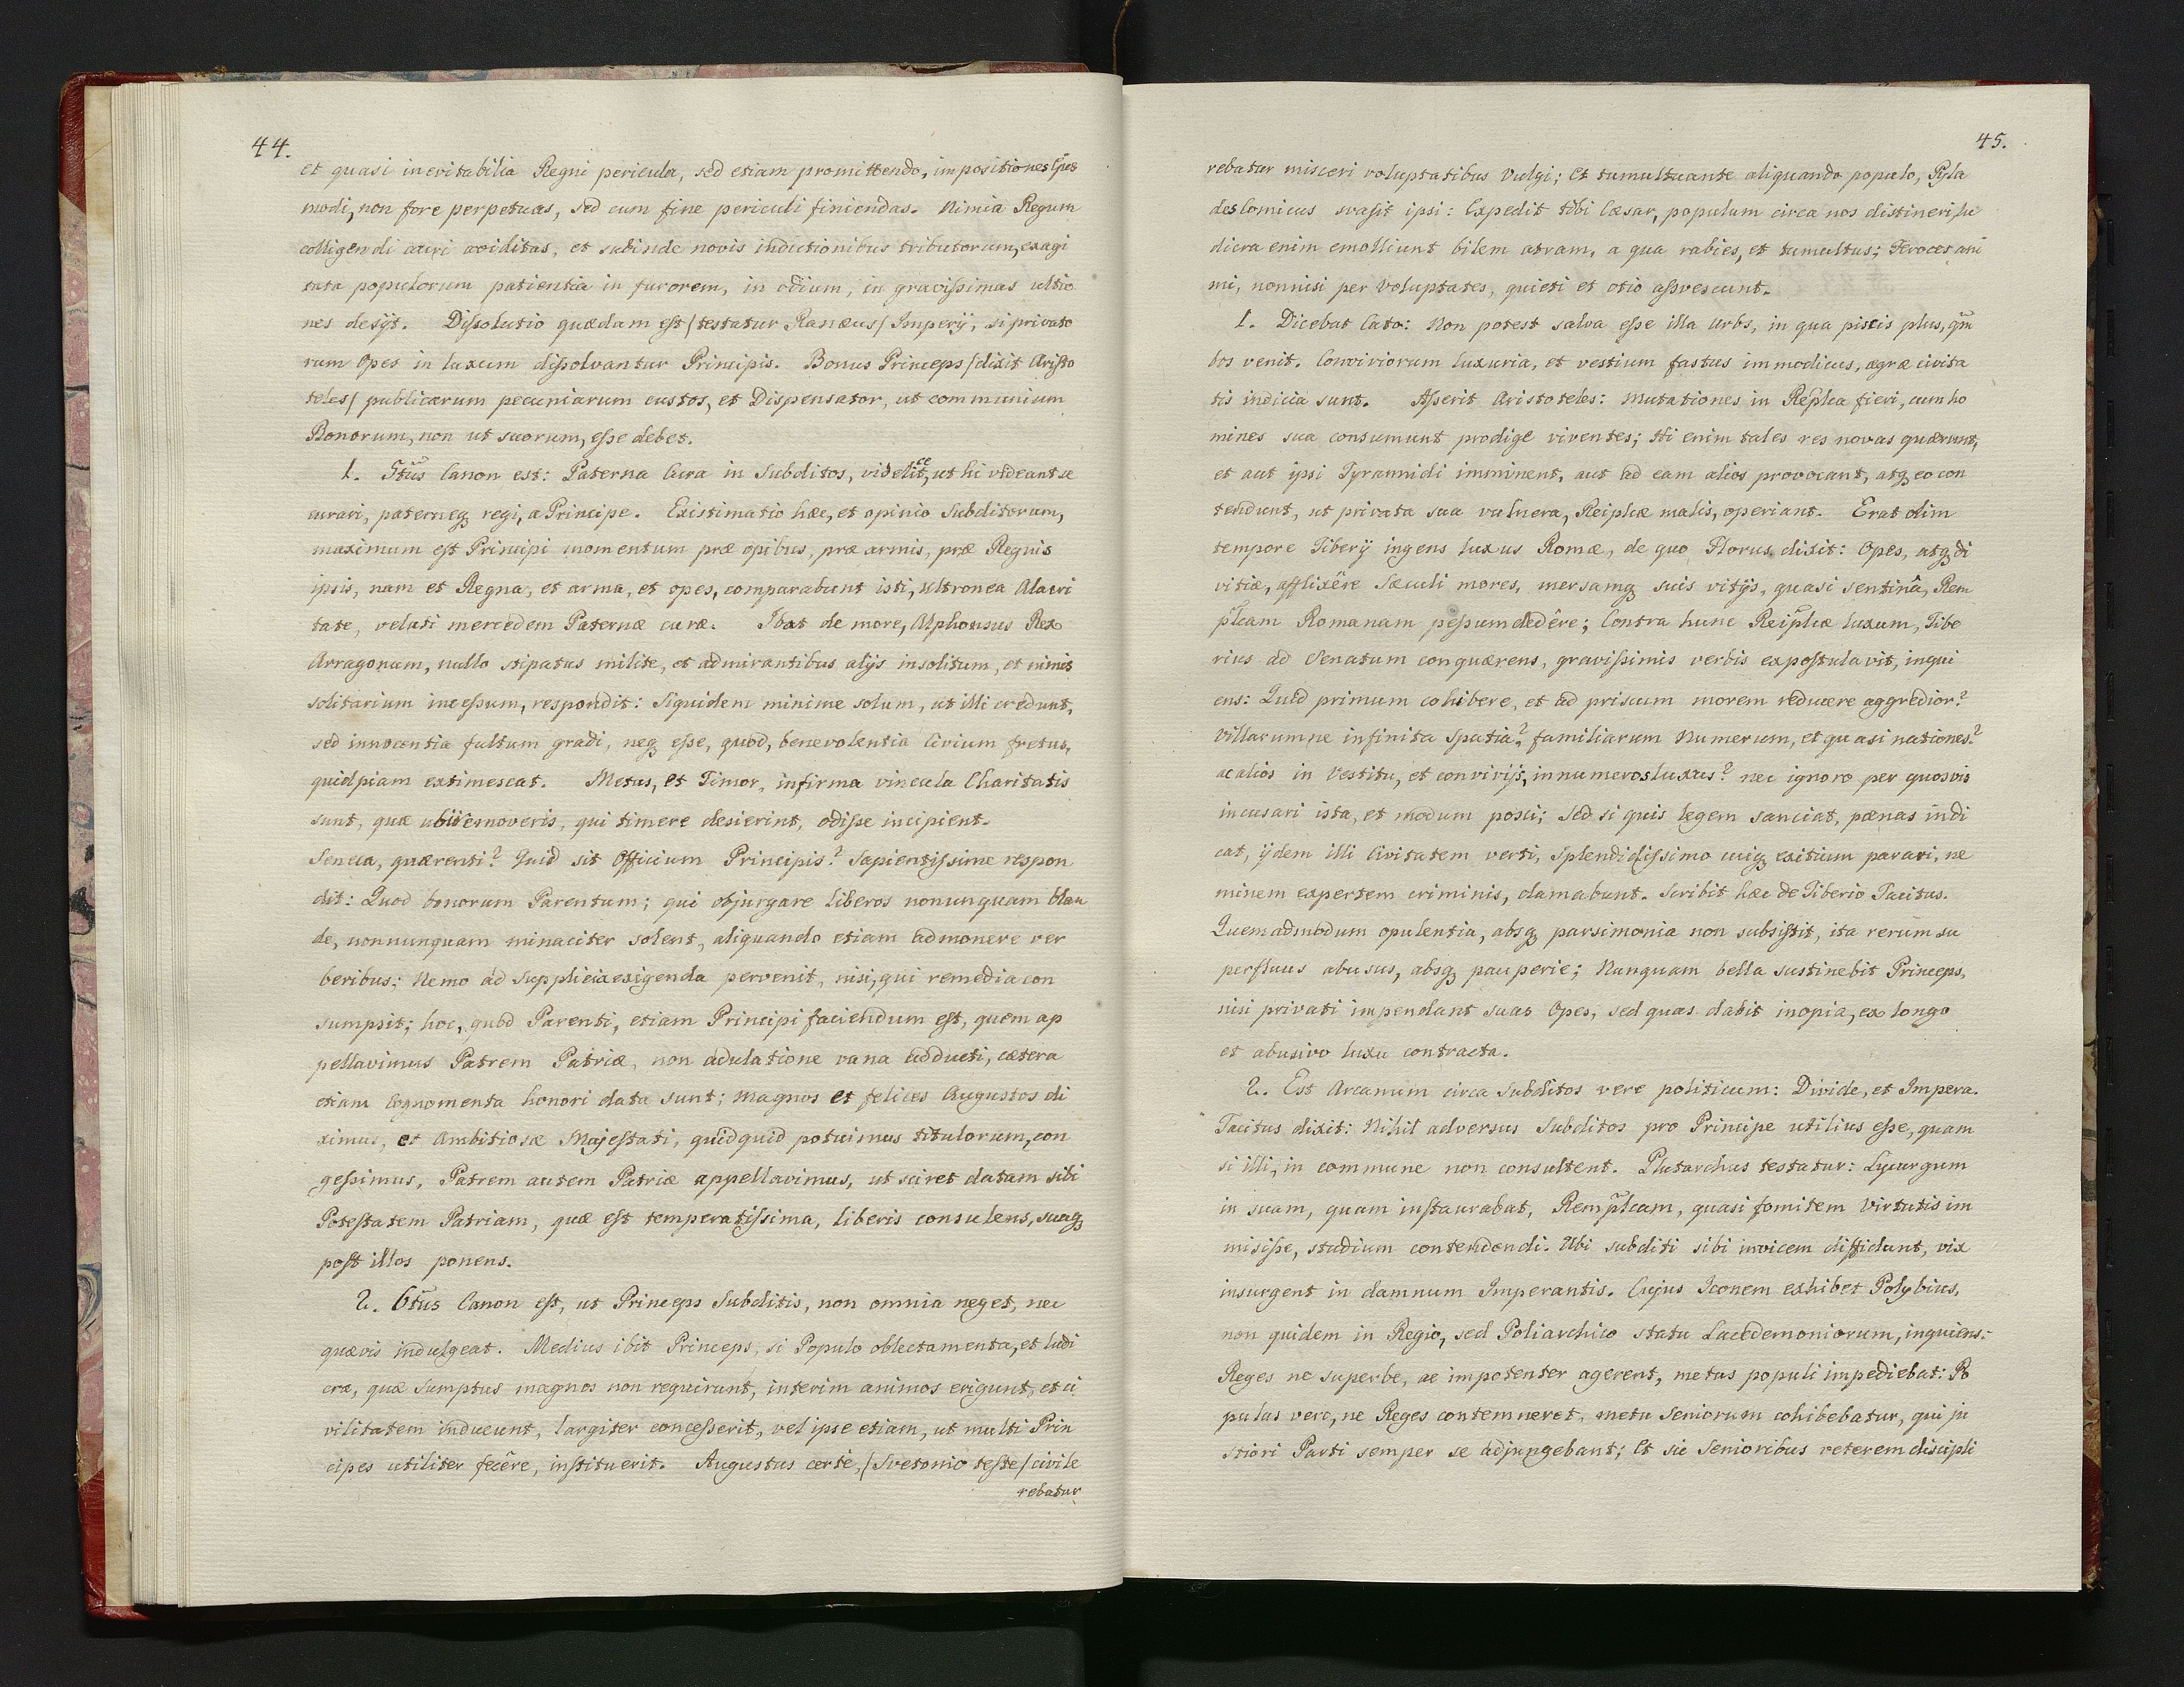 44.
et quasi inevitabilia Regni pericula, sed etiam promittendo, impositiones ejus
modi, non fore perpetuas, sed cum fine periculi finiendas. Nimia Regum
colligendi aeri aviditas, et subinde novis indictionibus tributorum, exagi
tata populorum patientia in furorem, in odium, in gravissimas ultio
nes desijt. Dissolutio quædam est /testatur Ranæus/ Imperij, si privato
rum Opes in luxum dissolvantur Principis. Bonus Princeps /dixit Aristo
teles/ publicarum pecuniarum custos, et Dispensator, ut communium
Bonorum, non ut suorum, esse debet.
1. 5tus Canon est: Paterna Cura in Subditos, videlicet, ut hi videant se
curari, paterneq regi, a Principe. Existimatio hæc, et opinio Subditorum,
maximum est Principi momentum præ opibus, præ armis, præ Regnis
ipsis, nam et Regna, et arma, et opes, comparabunt isti, ultronea Alacri
tate, veluti mercedem Paternæ curæ. Ibat de more, Alphonsus Rex
Arragonum, nullo stipatus milite, et admirantibus alijs insolitum, et nimis
solitarium incessum, respondit: Siquidem minime solum, ut illi credunt,
sed innocentia fultum gradi, neq esse, quod, benevolentia Civium fretus,
quidpiam extimescat. Metus, et Timor, infirma vincula Charitatis
sunt, quæ ubi removeris, qui timere desierint, odisse incipient.
Seneca, quærenti? Quid sit Officium Principis? Sapientissime respon
dit: Quod bonorum Parentum; qui objurgare liberos nonunquam blan
de, nonnunquam minaciter solent, aliquando etiam admonere ver
beribus; Nemo ad Supplicia exigenda pervenit, nisi, qui remedia con
sumpsit; hoc, quod Parenti, etiam Principi faciendum est, quem ap
pellavimus Patrem Patriæ, non adulatione vana adducti, cætera
etiam Cognomenta honori data sunt; Magnos et felices Augustos di
ximus, et Ambitiosæ Majestati, quidquid potuimus titulorum, con
gessimus, Patrem autem Patriæ appellavimus, ut sciret datam sibi
Potestatem Patriam, quæ est temperatissima, liberis consulens, suaq
post illos ponens.
2. 6tus Canon est, ut Princeps Subditis, non omnia neget, nec
quævis indulgeat. Medius ibit Princeps, si Populo oblectamenta, et ludi
cra, quæ Sumptus magnos non requirunt, interim animos erigunt, et ci
vilitatem inducunt, largiter concesserit, vel ipse etiam, ut multi Prin
cipes utiliter fecêre, instituerit. Augustus certe, /Svetonio teste/ civile
rebatur
45.
rebatur misceri voluptatibus Vulgi; Et tumultuante aliquando populo, Pyla
des Comicus svasit ipsi: Expedit tibi Cæsar, populum circa nos distineri, lu
dicra enim emolliunt bilem atram, a qua rabies, et tumultus; Feroces ani
mi, nonnisi per Voluptates, quieti et otio assvescunt.
1. Dicebat Cato: Non potest salva esse illa Urbs, in qua piscis plus, qm
bos venit. Conviviorum luxuria, et vestium fastus immodicus, ægræ civita
tis indicia sunt. Asserit Aristoteles: Mutationes in Replca fieri, cum ho
mines sua consumunt prodige viventes; Hi enim tales res novas quærunt,
et aut ipsi Tyrannidi imminent, aut ad eam alios provocant, atq eo con
tendunt, ut privata sua vulnera, Reiplcæ malis, operiant. Erat olim
tempore Tiberij ingens luxus Romæ, de quo Florus dixit: Opes, atq di
vitiæ, afflixêre Sæculi mores, mersamq suis vitijs, quasi sentinâ, Rem
plcam Romanam pessum dedêre; Contra hunc Reiplcæ luxum, Tibe
rius ad Senatum conquærens, gravissimis verbis expostulavit, inqui
ens: Quid primum cohibere, et ad priscum morem reducere aggredior?
Villarumne infinita Spatia? familiarum Numerum, et quasi nationes?
ac alios in Vestitu, et convivijs, innumeros luxus? nec ignoro per quosvis
incusari ista, et modum posci; Sed si quis legem sanciat, pænas indi
cat, ijdem illi Civitatem verti, Splendidissimo cuiq exitium parari, ne
minem expertem criminis, clamabunt. Scribit hæc de Tiberio Tacitus.
Quemadmodum opulentia, absq parsimonia non subsistit, ita rerum su
perfluus abusus, absq pauperie; Nunquam bella sustinebit Princeps,
nisi privati impendant suas Opes, sed quas dabit inopia, ex longo
et abusivo luxu contracta.
2. Est Arcanum circa Subditos vere politicum: Divide, et Impera.
Tacitus dixit: Nihil adversus Subditos pro Principe utilius esse, quam
si illi, in commune non consultent. Plutarchus testatur: Lycurgum
in suam, quam instaurabat, Remplcam, quasi fomitem Virtutis im
misisse, studium contendendi. Ubi subditi sibi invicem diffidunt, vix
insurgent in damnum Imperantis. Cujus Iconem exhibet Polybius,
non quidem in Regio, sed Poliarchico statu Lacedemoniorum, inquiens:
Reges ne superbe, ac impotenter agerent, metus populi impediebat: Po
pulus vero, ne Reges contemneret, metu Seniorum cohibebatur, qui ju
stiori Parti semper se adjungebant; Et sic Senioribus veterem discipli